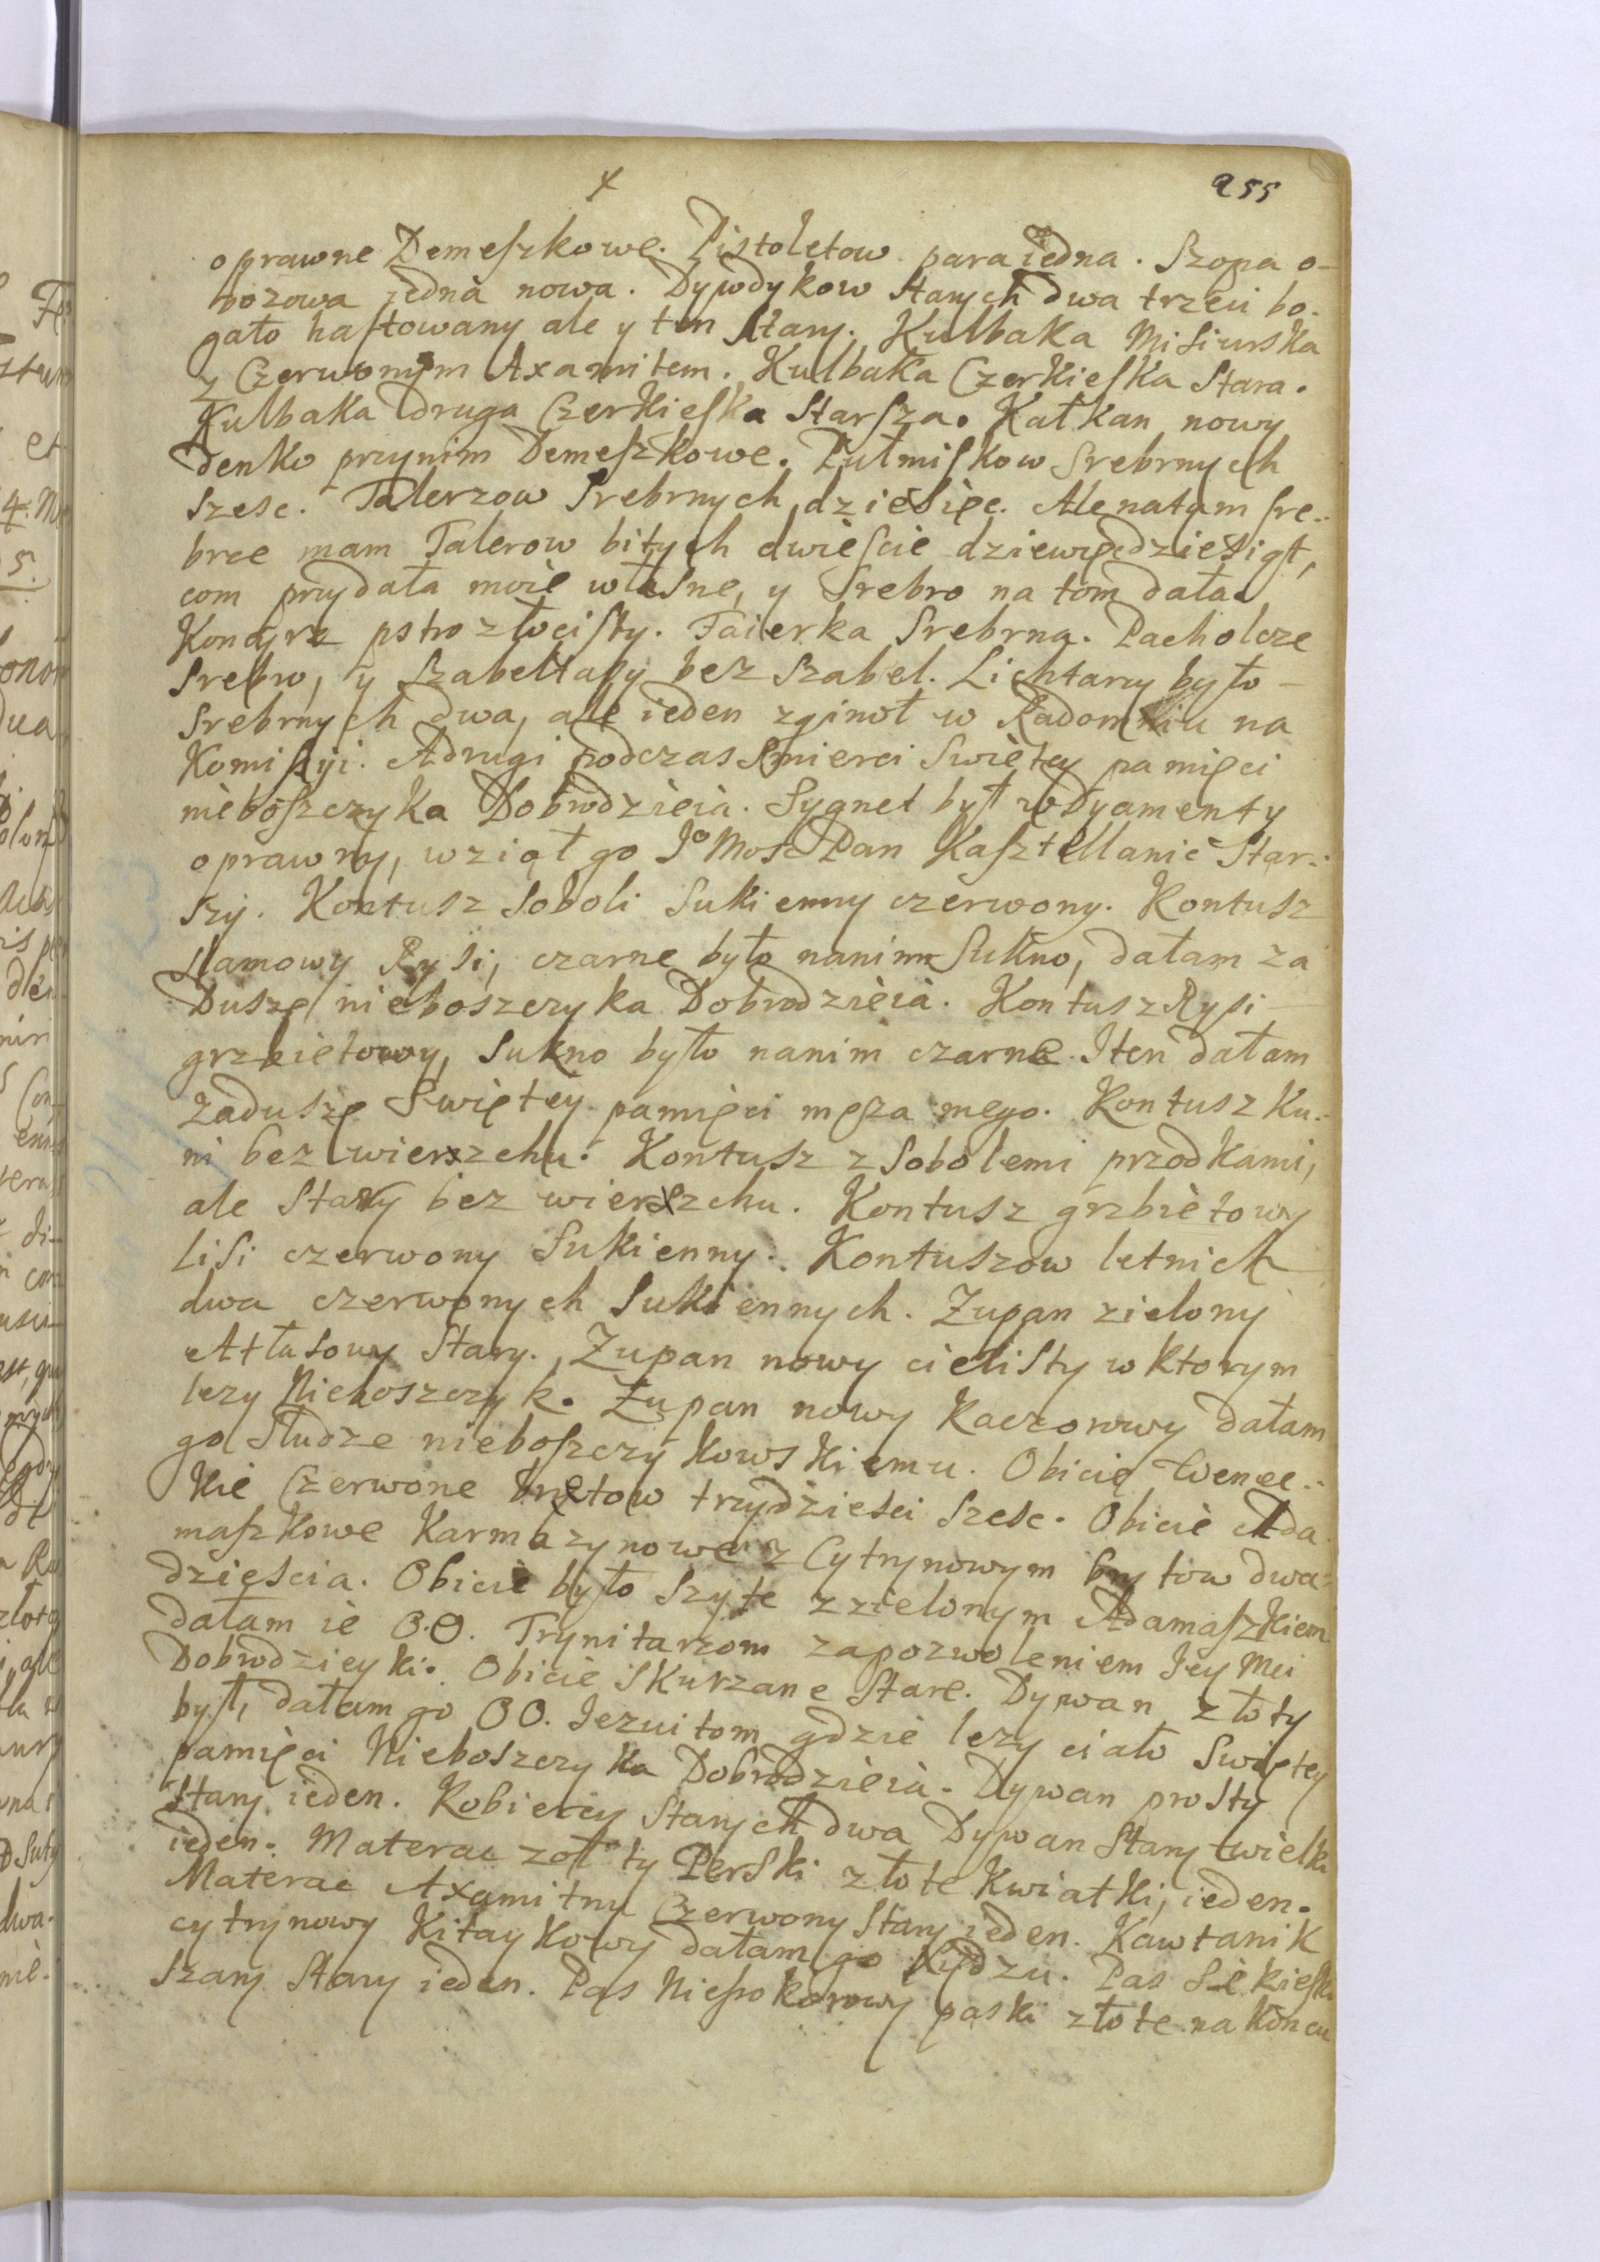 255
oprawne Demeszkowe. Pistoletow para iedna. Szopa o-
bozowa jedna nowa. Dywdykow starych dwa trzeci bo-
gato haftowany ale y ten stary. Kulbaka Misiurska
z Czerwonym Axamitem. Kulbaka Czerkieska stara.
Kulbaka druga Czerkieska starsza. Kałkan nowy
denko przynim Demeszkowe. Pułmiskow srebrnych
szesc. Talerzow srebrnych dziesięc. Ale natym sre-
brze mam Talerow bitych dwiescie dziewiędziesiąt,
com przydała moie własne, y srebro na tom dała.
Konczyrz pstrozłocisty. Faierka srebrna. Pacholcze
srebro, y szabeltasy bez szabel. Lichtarzy było
srebrnych dwa, ale ieden zginoł w Radomiu na
Komissyi. A drugi podczas smierci swiętey pamięci
nieboszczyka Dobrodzieia. Sygnet był w dyamenty
oprawny, wziął go Jo Mosc Pan Kasztellanic star-
szy. Kontusz soboli sukienny czerwony. Kontusz
slamowy Rysi, czarne było nanim sukno, dałam za
Duszę nieboszczyka Dobrodzieia. Kontusz Rysi
grzbietowy, sukno było nanim czarne. I ten dałam
zaduszę swiętey pamięci męza mego. Kontusz ku-
ni bez wierszchu. Kontusz z sobolemi przodkami,
ale stary bez wierszchu. Kontusz grzbietowy
lisi czerwony sukienny. Kontuszow letnich
dwa czerwonych sukiennych. Zupan zielony
Atłasowy stary. Zupan nowy cielisty w ktorym
lezy Nieboszczyk. Zupan nowy kaczorowy dałam
go słudze nieboszczykowskiemu. Obicie Wenec-
kie Czerwone brytow trzydziesci szesc. Obicie Ada-
maszkowe karmazynowe z Cytrynowym brytow dwa-
dziescia. Obicie było szyte z zielonym Adamaszkiem
dałam ie O.O. Trynitarzom zapozwoleniem Jey Mci
Dobrodzieyki. Obicie skurzane stare. Dywan złoty
był, dałam go OO. Iezuitom gdzie lezy ciało swiętey
pamięci Nieboszczyka Dobrodzieia. Dywan prosty
stary ieden. Kobiercy starych dwa Dywan stary wielki
ieden. Materac zołty Perski złote kwiatki, ieden.
Materac Axamitny Czerwony stary ieden. Kawtanik
cytrynowy kitaykowy dałam go Xiędzu. Pas siekieski
szary stary ieden. Pas Nieprokorowy paski złote na koncu